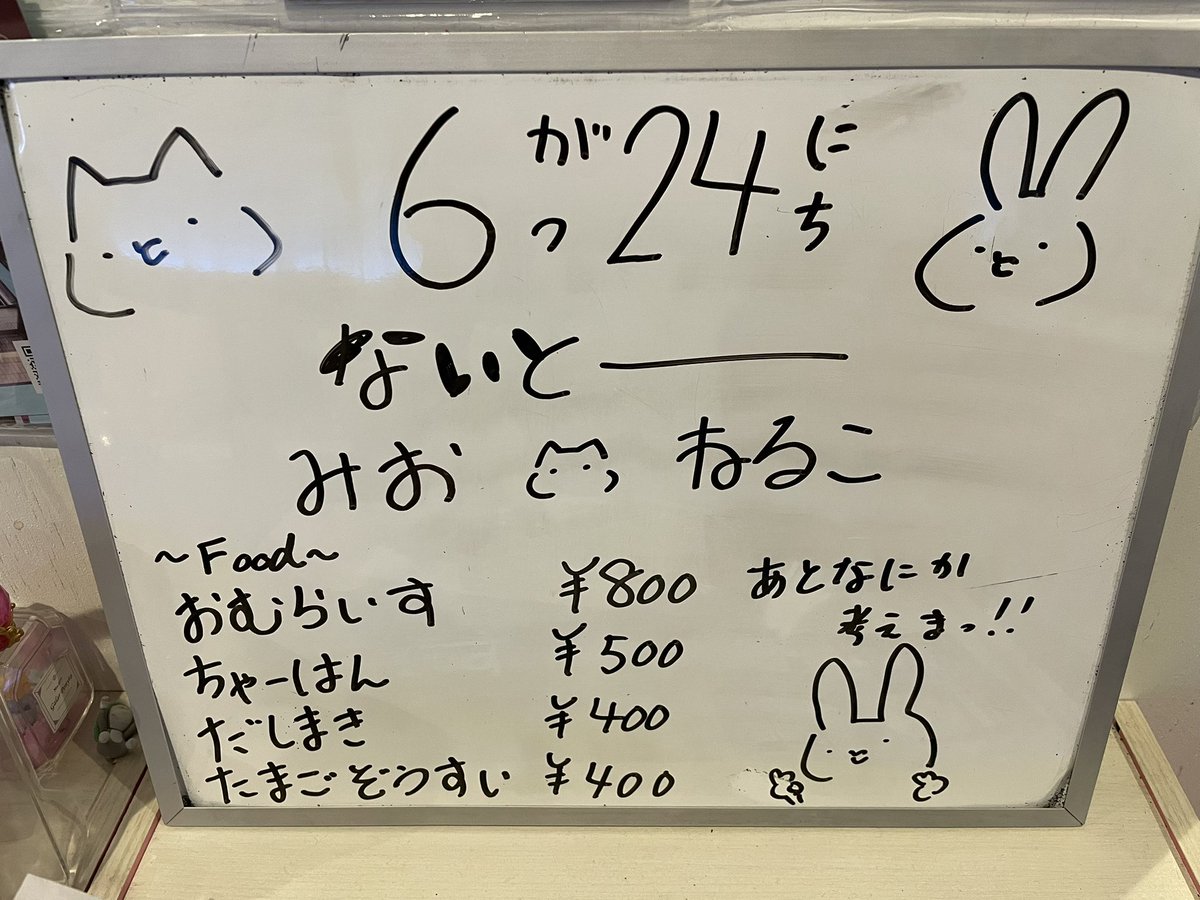 6がつ24にち
ないと―
みお ねるこ
~Food~
おむらいす ¥800
ちゃーはん ¥500
だしまき ¥400
たまごぞうすい ¥400
あとなにか
考えまっ!!